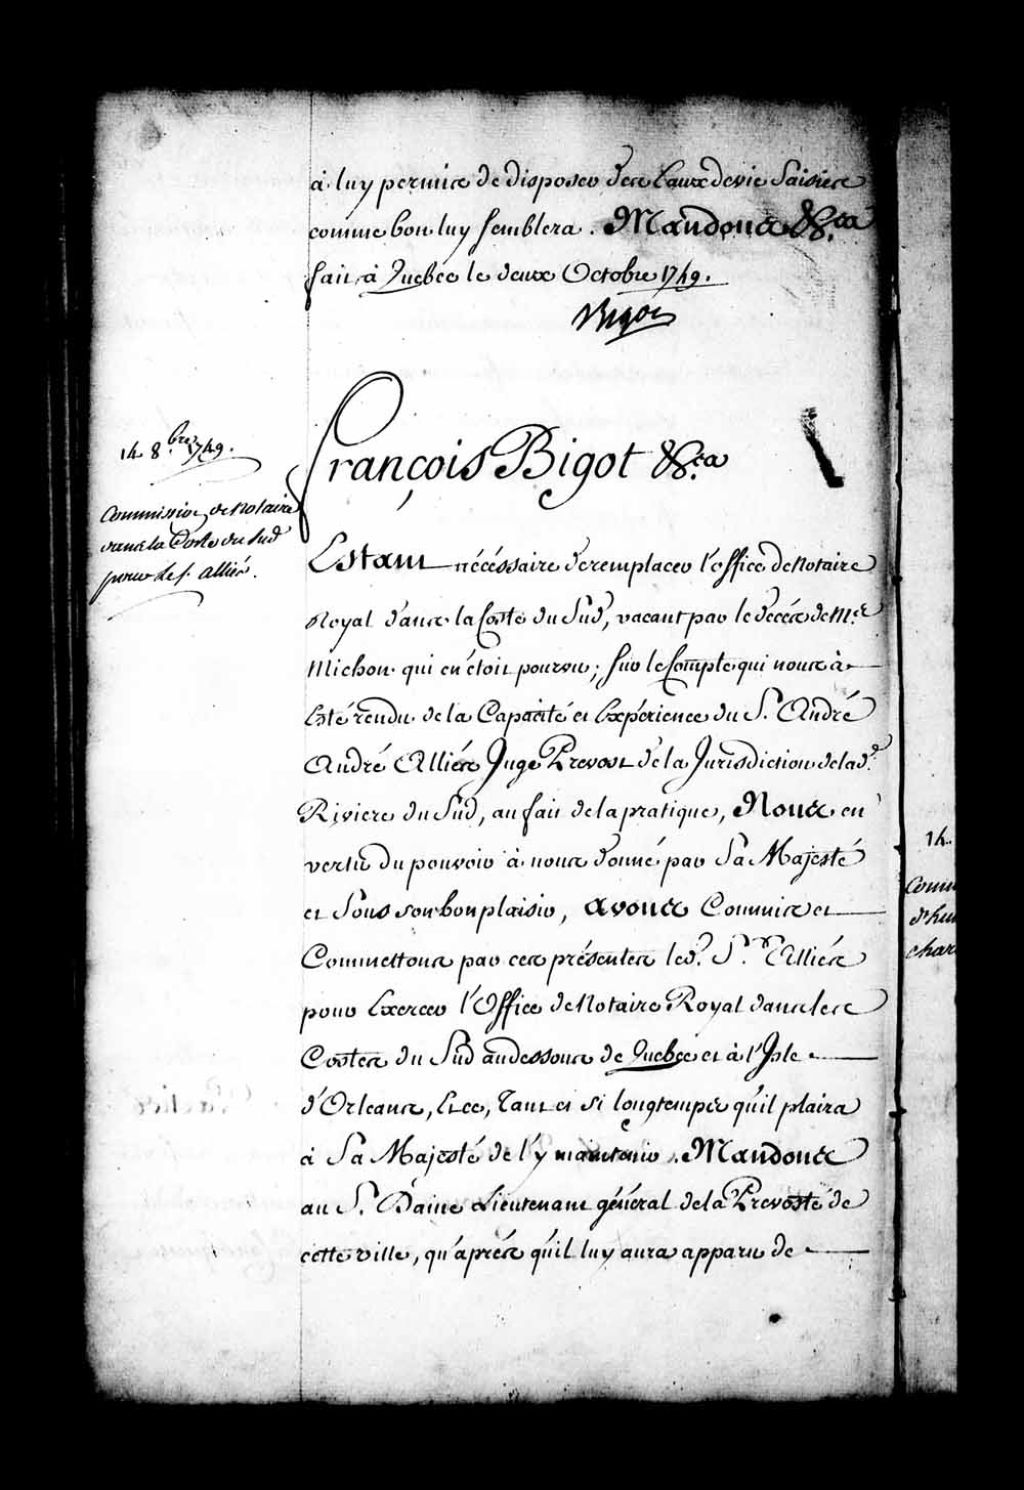 à luy permis de disposer des Eaux devie Saisies
comme bon luy semblera. Mandons &c.ª
fait à Quebec le deux Octobre 1749.
Bigot
14 8.bre 1749.
Commission de Notaire
dans la Coste du Sud
pour le S. Alliés.
François Bigot &c.ª
Estant nécéssaire de remplacer l'office de Notaire
Royal dans la Coste du Sud, vacant par le decés de M.e
Michon qui en étoit pourvu; sur le Compte qui nous à
Esté rendu de la Capacité et Expérience du S. André
André Alliés Juge Prevost de la Jurisdiction de lad.e
Riviere du Sud, au fait de la pratique, Nous en
vertu du pouvoir à nous donné par Sa Majesté
et sous son bon plaisir, avons Commis et
Commettons par ces présentes led. S.r Alliés
pour Exercer l'Office de Notaire Royal dans les
Costes du Sud audessous de Quebec et à l'Isle
d'Orleans, Et ce, Tant et si longtemps qu'il plaira
à Sa Majesté de l'y maintenir. Mandons
au S. Daine Lieutenant général de la Prevosté de
cette ville, qu'aprés qu'il luy aura apparu de
14.
Comm
d'hui
char